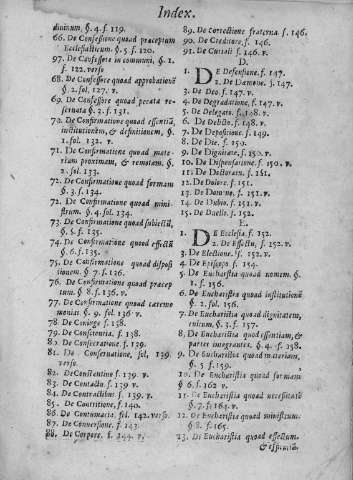 Index.
divinum, §. 4. f. 119.
66. De Confessione quoad praeceptum
Ecclesiasticum. §. 5. f. 120.
97. De Confessore in communi, §. 1.
f. 122. verso
68. De Confessore quoad approbationē
§. 2. fol. 127. v.
69. De Confessore quoad pecata re-
servata §. 3. f. 131.
70. De Confirmatione quoad essentiā,
institutionem, & definitionem, §.
1. fol. 132. v.
71. De Confirmatione quoad mate-
riam proximam, & remotam. §.
2. fol. 133.
72. De Confirmatione quoad formam
§. 3. f. 134.
72. De Confirmatione quoad mini-
strum. §. 4. fol. 134.
73. De Confirmatione quoad subiectū,
§. 5. f. 135.
74. De Confirmatione quoad effectū
§. 6. f. 135.
75. De Confirmatione quoad disposi
tionem §. 7. f. 126.
76. De Confirmatione quoad praecep
tum. §. 8. f. 136. v.
77. De Confirmatione quoad caeremo
monias §. 9. fol. 136 v.
78. De Coniuge f. 138.
79. De Conscientia. f. 138.
80. De Consecratione. f. 139.
81. De Conservatione, fol, 139.
verso.
82. De Constantino f. 139. v.
83. De Contactu. f. 139. v.
84. De Contractibus f. 139. v.
85. De Contritione, f. 140.
86. De Contumacia. fol. 142. verso.
87. De Conversione, f. 143.
88. De Corpore, f. 144. v.
89. De Correctione fraterna. f. 146.
90. De Creditore. f. 146.
91. De Curiali f. 146. v.
D.
1. DE Defensione. f. 147.
2. De Damone. f. 147.
3. De Deo. f. 147. v.
4. De Degradatione, f. 147. v.
5. De Delegato. f. 148. v.
6. De Debito. f. 148. v.
7. De Depositione. f. 149.
8. De Die. f. 150.
9. De Dignitate. f. 150. v.
10. De Dispensatione. f. 150. v.
11. De Doctoratu. f. 151.
12. De Dolore. f. 151.
13. De Domino. f. 151. v.
14. De Dubio. f. 151. v.
15. De Duello. f. 152.
E.
1. DE Ecclesia. f. 152.
2. De Effectu, f. 152. v.
3. De Electione. f. 152. v.
4. De Episcopo f. 154.
5. De Eucharistia quoad nomen. §.
1. f. 156.
6. De Eucharistia quoad institutionē
§. 2. f. 156. v.
7. De Eucharistia quoad dignitatem,
unitatem, §. 3. f. 157.
8. De Eucharistia quoad essentiam, &
partes integrantes. §. 4. f. 158.
9. De Eucharistia quoad materiam,
§. 5 f. 159.
10. De Eucharistia quoad formam
§ 6. f. 162 v.
11. De Eucharistia quoad necessitatē
§. 7. f. 164. v.
12. De Eucharistia quoad ministrum.
§ 8. f. 165.
13. De Eucharistia quoad effectum,